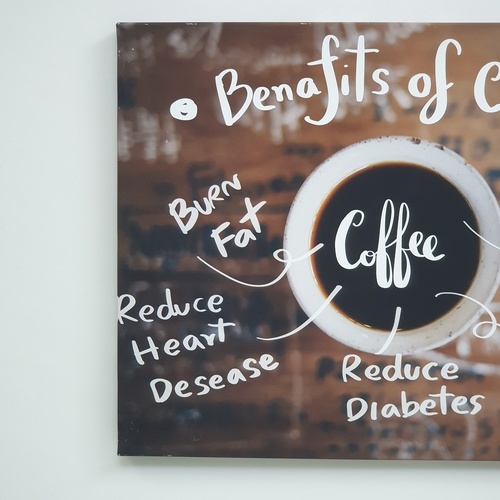 Benafits of C
Burn
Fat
Coffee
Reduce
Heart
Desease
Reduce
Diabetes